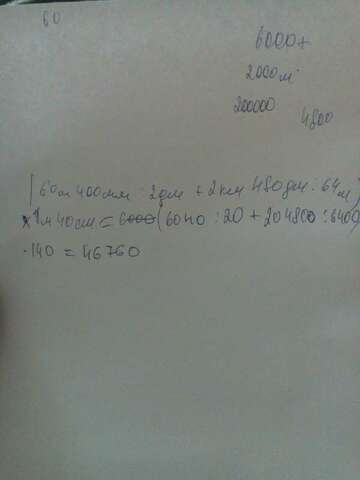 60
6000+
2000м
200000
4800
(60м 400мм : 2дм + 2км 480дм : 64м)
х 1м 40см = 6000 (6040 : 20 + 204800 : 6400)
·140 = 46760